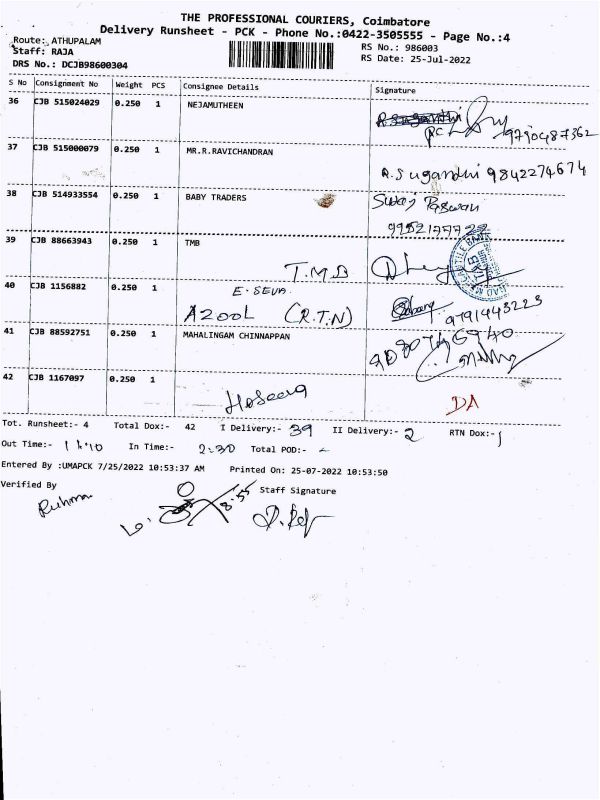 THE PROFESSIONAL COURIERS, Coimbatore
Delivery Runsheet - PCK - Phone No.:0422-3505555 - Page No.:4
Route: ATHUPALAM
RS No.: 986003
Staff: RAJA
RS Date: 25-Jul-2022
DRS No.: DCJB98600304
S No Consignment No Weight PCS Consignee Details Signature
36 CJB 515024029 0.250 1 NEJAMUTHEEN
9790487362
37 CJB 515000079 0.250 1 MR.R.RAVICHANDRAN
A.Sugandhi 9842274674
38 CJB 514933554 0.250 1 BABY TRADERS
39 CJB 88663943 0.250 1 TMB
T.M.B
40 CJB 1156882 0.250 1 E-SEVA
AZOOL (R.T.N) 9791443223
41 CJB 88592751 0.250 1 MAHALINGAM CHINNAPPAN
42 CJB 1167097 0.250 1
DA
Tot. Runsheet:- 4 Total Dox:- 42 I Delivery:- 39 II Delivery:- 2 RTN Dox:- 1
Out Time:- In Time:- 2:30 Total POD:-
Entered By :UMAPCK 7/25/2022 10:53:37 AM Printed On: 25-07-2022 10:53:50
Verified By Staff Signature
8.55